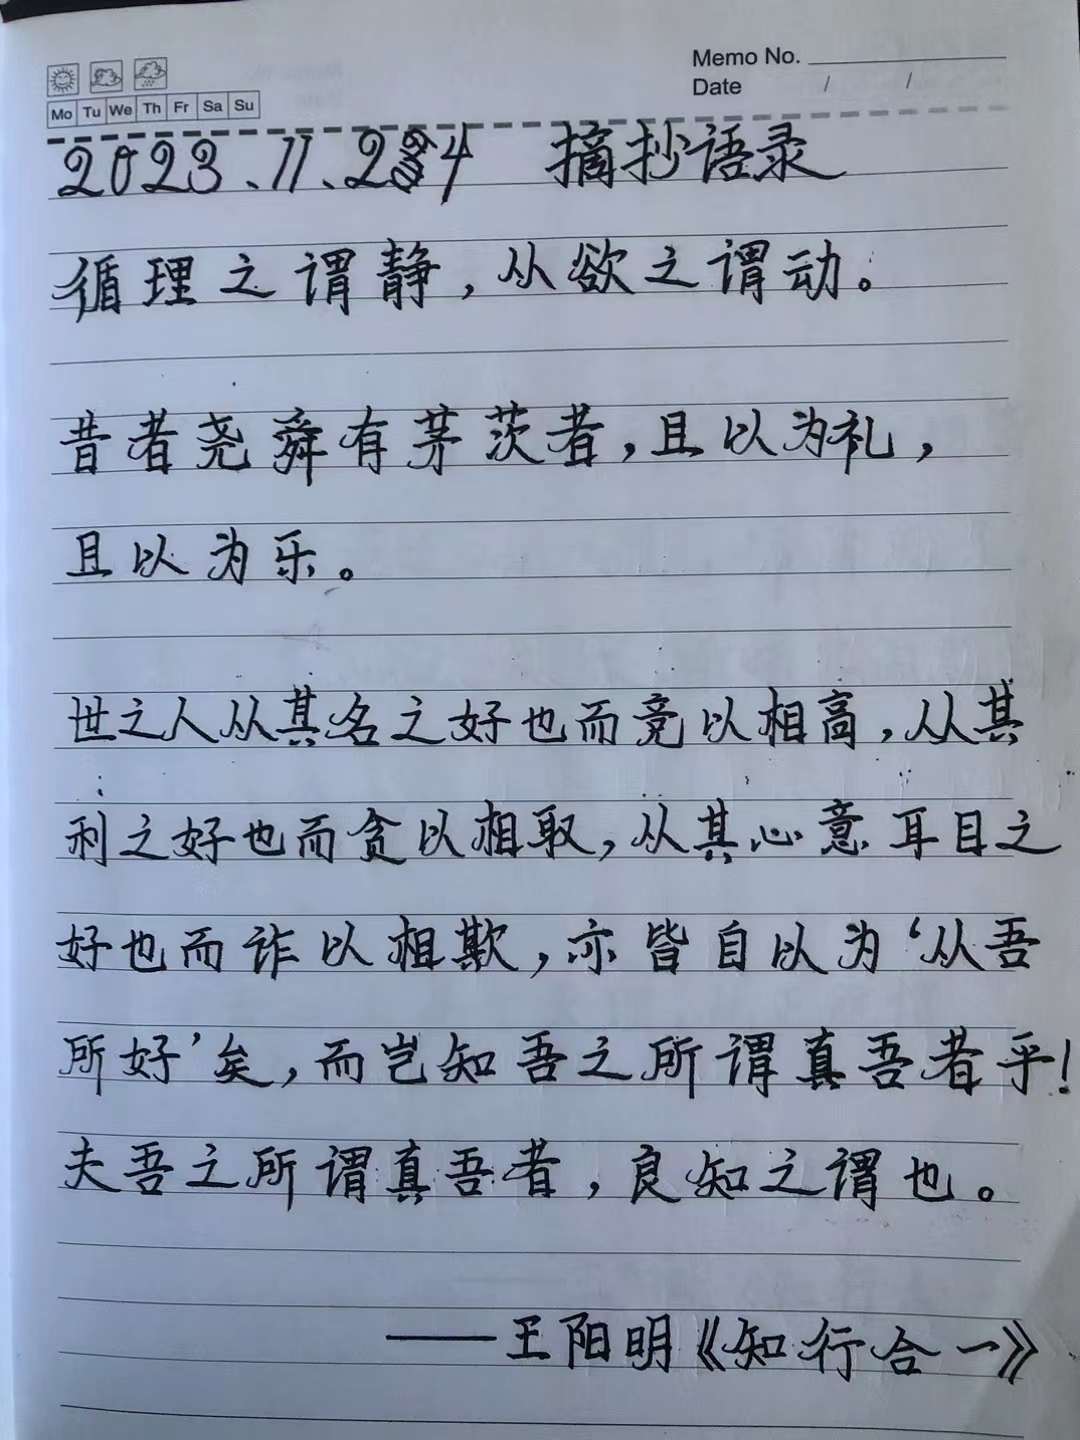 Memo No.
Date / /
Mo Tu We Th Fr Sa Su
2023.11.24 摘抄语录
循理之谓静，从欲之谓动。
昔者尧舜有茅茨者，且以为礼，
且以为乐。
世之人从其名之好也而竞以相高，从其
利之好也而贪以相取，从其心意耳目之
好也而诈以相欺，亦皆自以为‘从吾
所好’矣，而岂知吾之所谓真吾者乎！
夫吾之所谓真吾者，良知之谓也。
——王阳明《知行合一》